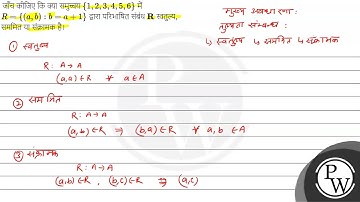 जाँच कीजिए कि क्या समुच्चय {1, 2, 3, 4, 5, 6} में
R = {(a, b) : b = a + 1} द्वारा परिभाषित संबंध R स्वतुल्य,
सममित या संक्रामक है।
मुख्य अवधारणा :
तुल्यता सम्बन्ध :
↳ स्वतुल्य ↳ सममित ↳ संक्रामक
① स्वतुल्य
R : A → A
(a,a) ∈ R ∀ a ∈ A
② सममित
R : A → A
(a,b) ∈ R ⇒ (b,a) ∈ R ∀ a, b ∈ A
③ संक्रामक
R : A → A
(a,b) ∈ R , (b,c) ∈ R ⇒ (a,c)
PW